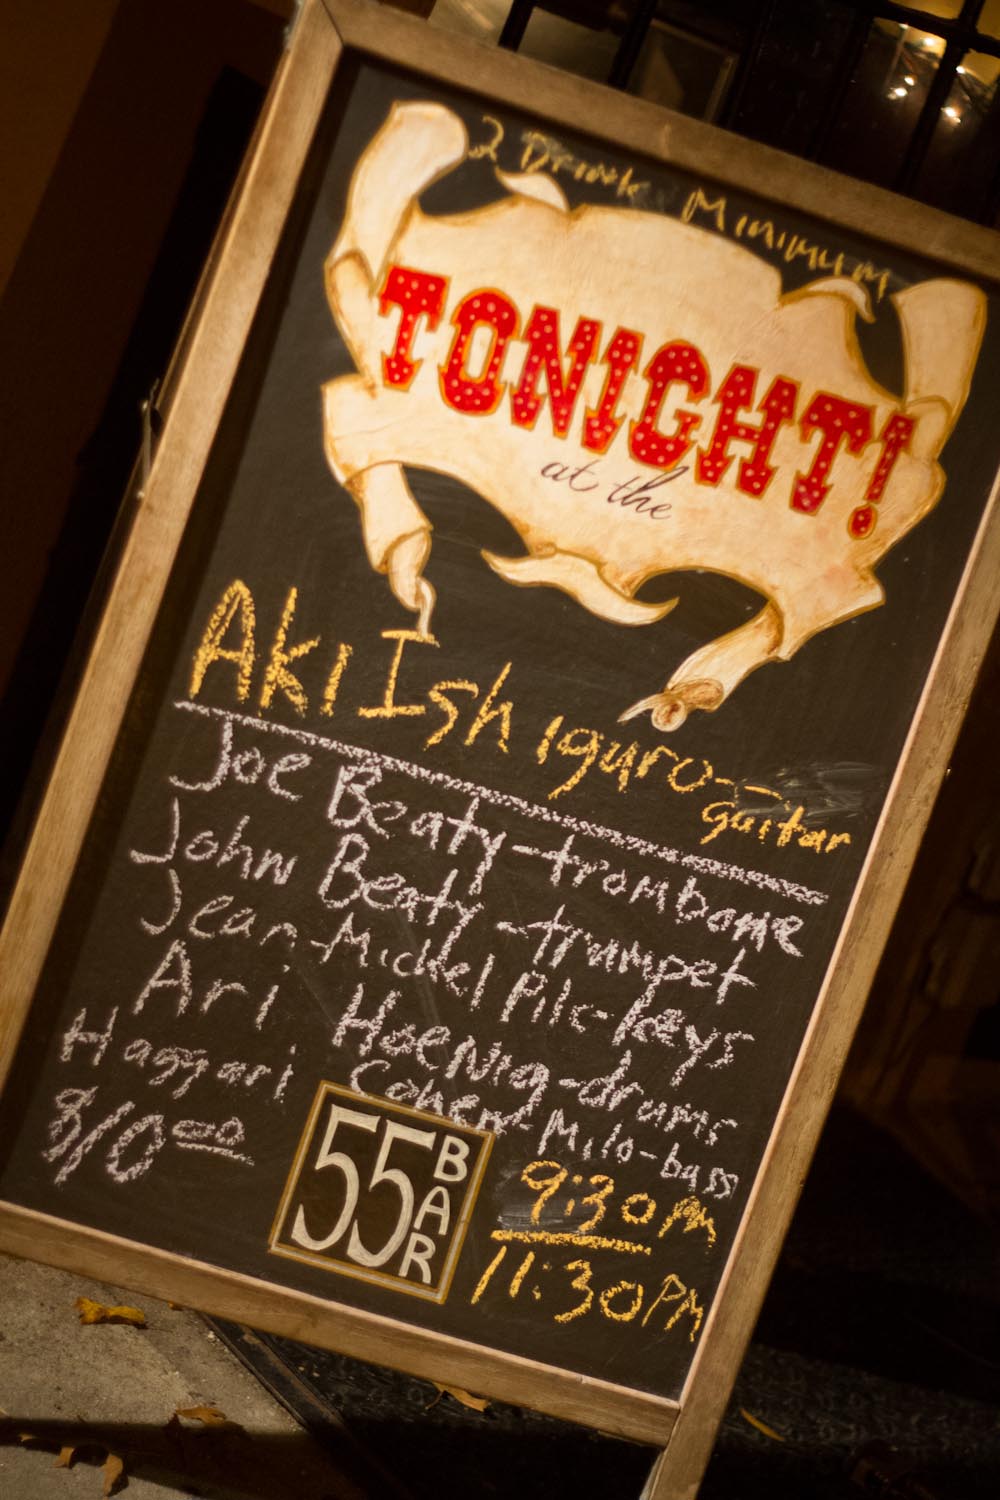 2 Drink Minimum
TONIGHT!
at the
Aki Ishiguro-guitar
Joe Beaty-trombone
John Beaty-trumpet
Jean-Michel Pilc-keys
Ari Hoenig-drums
Haggari Cohen-Milo-bass
$10.00
55 BAR
9:30PM
11:30PM